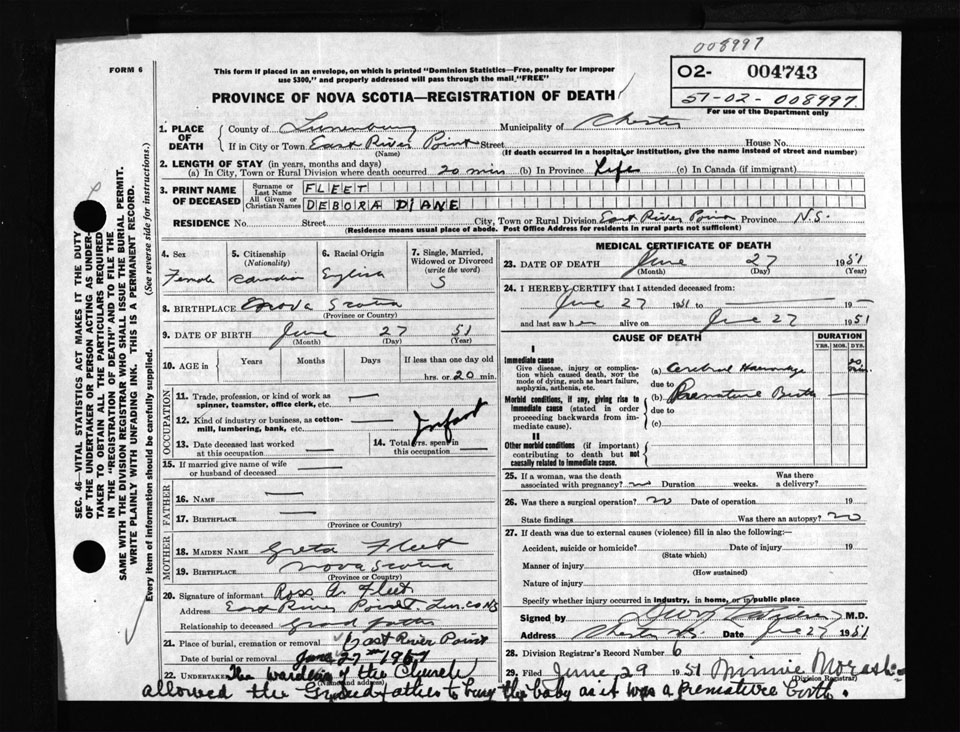 008997
FORM 6
This form if placed in an envelope, on which is printed "Dominion Statistics—Free, penalty for improper
use $300," and properly addressed will pass through the mail "FREE"
02- 004743
51-02-008997
For use of the Department only
PROVINCE OF NOVA SCOTIA—REGISTRATION OF DEATH
1. PLACE OF DEATH
County of Lunenburg Municipality of Chester
If in City or Town East River Point Street House No.
(Name) (If death occurred in a hospital or institution, give the name instead of street and number)
2. LENGTH OF STAY (in years, months and days)
(a) In City, Town or Rural Division where death occurred 20 min (b) In Province Life (c) In Canada (if immigrant)
3. PRINT NAME OF DECEASED
Surname or Last Name FLEET
All Given or Christian Names DEBORA DIANE
RESIDENCE No. Street City, Town or Rural Division East River Point Province N.S.
(Residence means usual place of abode. Post Office Address for residents in rural parts not sufficient)
4. Sex
Female
5. Citizenship (Nationality)
Canadian
6. Racial Origin
English
7. Single, Married, Widowed or Divorced (write the word)
S
8. BIRTHPLACE Nova Scotia
(Province or Country)
9. DATE OF BIRTH June 27 51
(Month) (Day) (Year)
10. AGE in Years Months Days If less than one day old
hrs. or 20 min.
OCCUPATION
11. Trade, profession, or kind of work as spinner, teamster, office clerk, etc. —
12. Kind of industry or business, as cotton-mill, lumbering, bank, etc.
Infant
13. Date deceased last worked at this occupation
14. Total yrs. spent in this occupation —
15. If married give name of wife or husband of deceased —
FATHER
16. NAME —
17. BIRTHPLACE —
(Province or Country)
MOTHER
18. MAIDEN NAME Greta Fleet
19. BIRTHPLACE Nova Scotia
(Province or Country)
20. Signature of informant Ross A. Fleet
Address East River Point Lun. Co NS
Relationship to deceased Grand father
21. Place of burial, cremation or removal East River Point
Date of burial or removal June 27th 1951
22. UNDERTAKER The wardens of the Church
(Name and address)
allowed the Grandfather to bury the baby as it was a premature birth.
MEDICAL CERTIFICATE OF DEATH
23. DATE OF DEATH June 27 1951
(Month) (Day) (Year)
24. I HEREBY CERTIFY that I attended deceased from:
June 27 1951 to — 19—
and last saw her alive on June 27 1951
CAUSE OF DEATH
DURATION
YRS. MOS. DYS.
I
Immediate cause
Give disease, injury or complication which caused death, NOT the mode of dying, such as heart failure, asphyxia, asthenia, etc.
(a) Cerebral Haemorrhage 20 min.
due to
Morbid conditions, if any, giving rise to immediate cause (stated in order proceeding backwards from immediate cause).
(b) Premature Birth
due to
(c)
II
Other morbid conditions (if important) contributing to death but not causally related to immediate cause.
25. If a woman, was the death associated with pregnancy? no Duration weeks. Was there a delivery?
26. Was there a surgical operation? no Date of operation 19
State findings Was there an autopsy? no
27. If death was due to external causes (violence) fill in also the following:
Accident, suicide or homicide? Date of injury 19
(State which)
Manner of injury
(How sustained)
Nature of injury
Specify whether injury occurred in industry, in home, or in public place
Signed by M.D.
Address Chester N.S. Date June 27 1951
28. Division Registrar's Record Number 6
29. Filed June 29 1951 Minnie
(Division Registrar)
SEC. 46—VITAL STATISTICS ACT MAKES IT THE DUTY
OF THE UNDERTAKER OR PERSON ACTING AS UNDER-
TAKER TO OBTAIN ALL THE PARTICULARS REQUIRED
IN THE "REGISTRATION OF DEATH" AND TO FILE THE
SAME WITH THE DIVISION REGISTRAR WHO SHALL ISSUE THE BURIAL PERMIT.
WRITE PLAINLY WITH UNFADING INK. THIS IS A PERMANENT RECORD.
Every item of information should be carefully supplied. (See reverse side for instructions.)